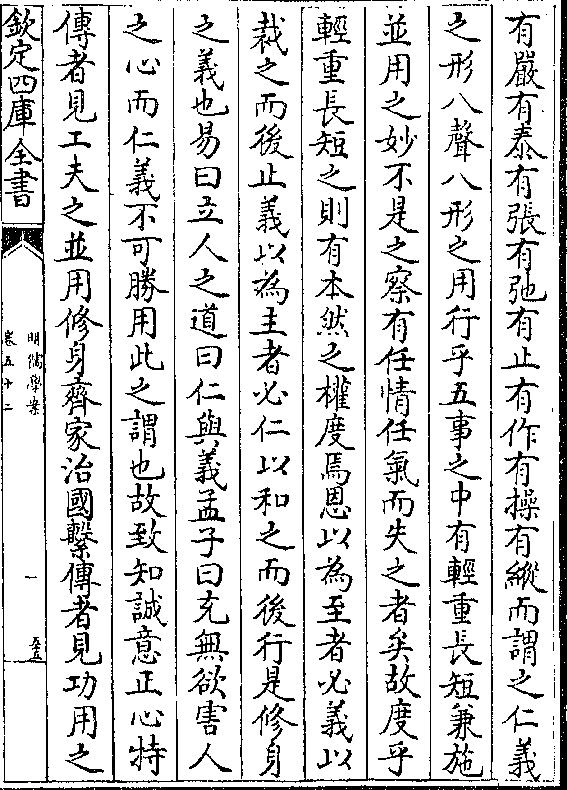 有嚴有泰有張有弛有止有作有操有縱而謂之仁義
之形八聲八形之用行乎五事之中有輕重長短兼施
並用之妙不是之察有任情任氣而失之者矣故度乎
輕重長短之則有本然之權度焉恩以為至者必義以
裁之而後止義以為主者必仁以和之而後行是修身
之義也易曰立人之道曰仁與義孟子曰充無欲害人
之心而仁義不可勝用此之謂也故致知誠意正心特
傳者見工夫之並用修身齊家治國繫傳者見功用之
欽定四庫全書
明儒學案
卷五十二